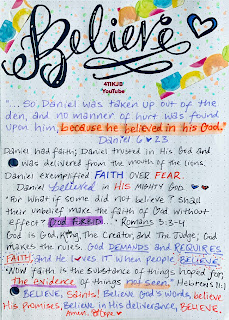 Believe
4TIKJB
YouTube
"...So Daniel was taken up out of the
den, and no manner of hurt was found
upon him, because he believed in his God."
Daniel 6 23
Daniel had faith; Daniel trusted in His God and
was delivered from the mouth of the lions.
Daniel exemplified FAITH OVER FEAR.
Daniel believed in HIS MIGHTY GOD.
"For what if some did not believe? Shall
their unbelief make the faith of God without
effect? GOD FORBID." Romans 3:3-4
God is God, King, The Creator, and The Judge; God
makes the rules. God DEMANDS and REQUIRES
FAITH, and He loves IT when people BELIEVE.
"Now faith is the substance of things hoped for,
the evidence of things not seen." Hebrews 11:1
BELIEVE, Saints! Believe God's words, believe
His Promises, Believe in His deliverance, BELIEVE.
Amen.